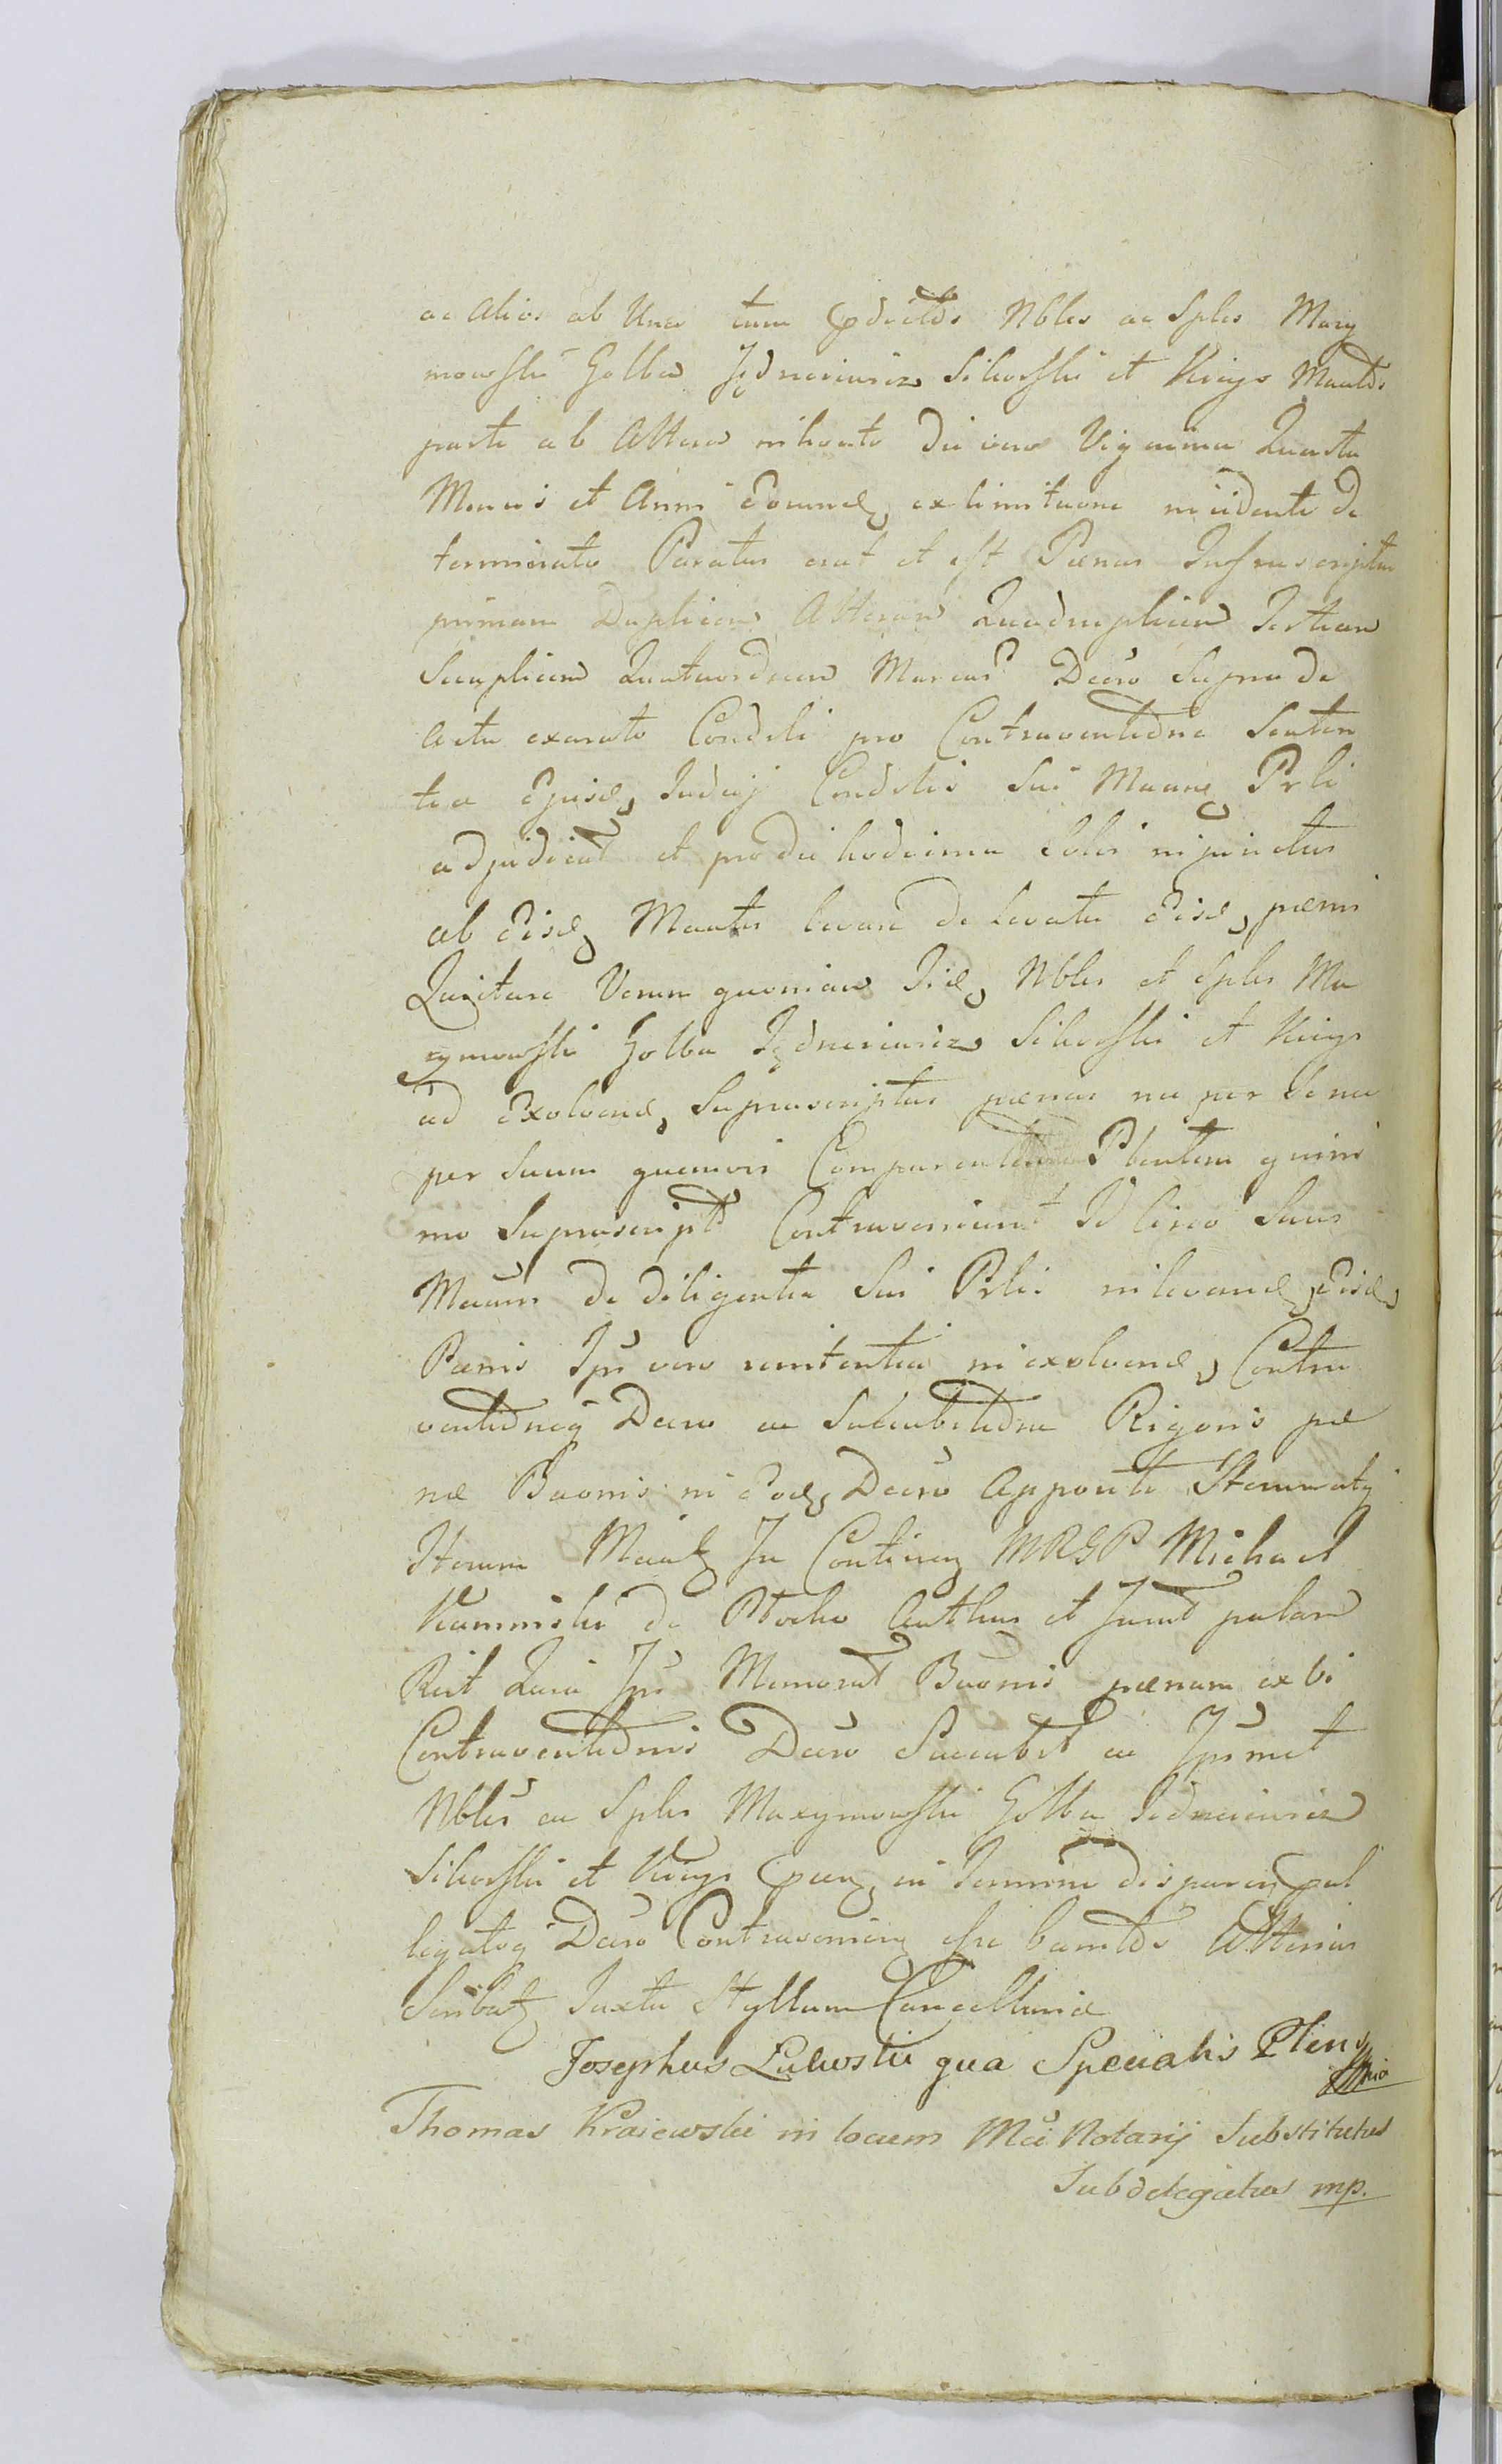 ac alios ab Una tum prdictos Nbles ac Sples Maxy
mowski Golba Jędrzeiewicz Sikorski et Kings Mandtos
parte ab Altera die vero Vigesima Quarta
Mensis et Anni Eorumd, ex limitaone incidente de
terminato Paratus erat et est Paenas Infrascriptas
primam Duplicem Alteram Quadruplicem Tertiam
Scuplicem Quatuordecim Marcas Decro Supra de
actu exarato Condeli pro Contraventidne Senten
tia Ejusd, Judicij Condelis Sui Mauns Prli
adjudicat et pro die hodierna Solis injunctus
ab Eisd, Mantes levare de levatis Eisd, paenis
Quietare Verum quoniam Iid, Nbles et Sples Ma
xymowski Golba Jędrzeiewicz Sikorski et Kings
ad Exolvend, Suprascriptas paenas nec per Se nec
per Suum quemvis Comparentem Plenten quini
mo Suprascript Contravenierunt Id circo Suus
Mauns de diligentia Sui Prlis in levand, Eisd,
Paenis Ipsi vero renitentia in exolvend, Contra
ventidneq Decro ac Succubitidne Rigoris pae
nae Baonis in Eod, Decro Appositi
Iterum In Continen MRGP Michael
Kaminski de Plocko Authus et Jurat palam
Rit Quia Ipsi Memorat Baonis paenam ex vi
Contraventidnis Decro Succubit ac Ipsimet
Nbles ac Sples Maxymowski Golba Jędrzeiewicz
Sikorski et Kings in Termino disparen pal
legatoq Decro Contravenien esse bannitos Alterius
Scribatz Iuxta Styllum Cancellariae
Josephus Lukoski qua Specialis Plens
mpria
Thomas Kraiewski in locum Mci Notarij Substitutus
Subdelegatus mp.